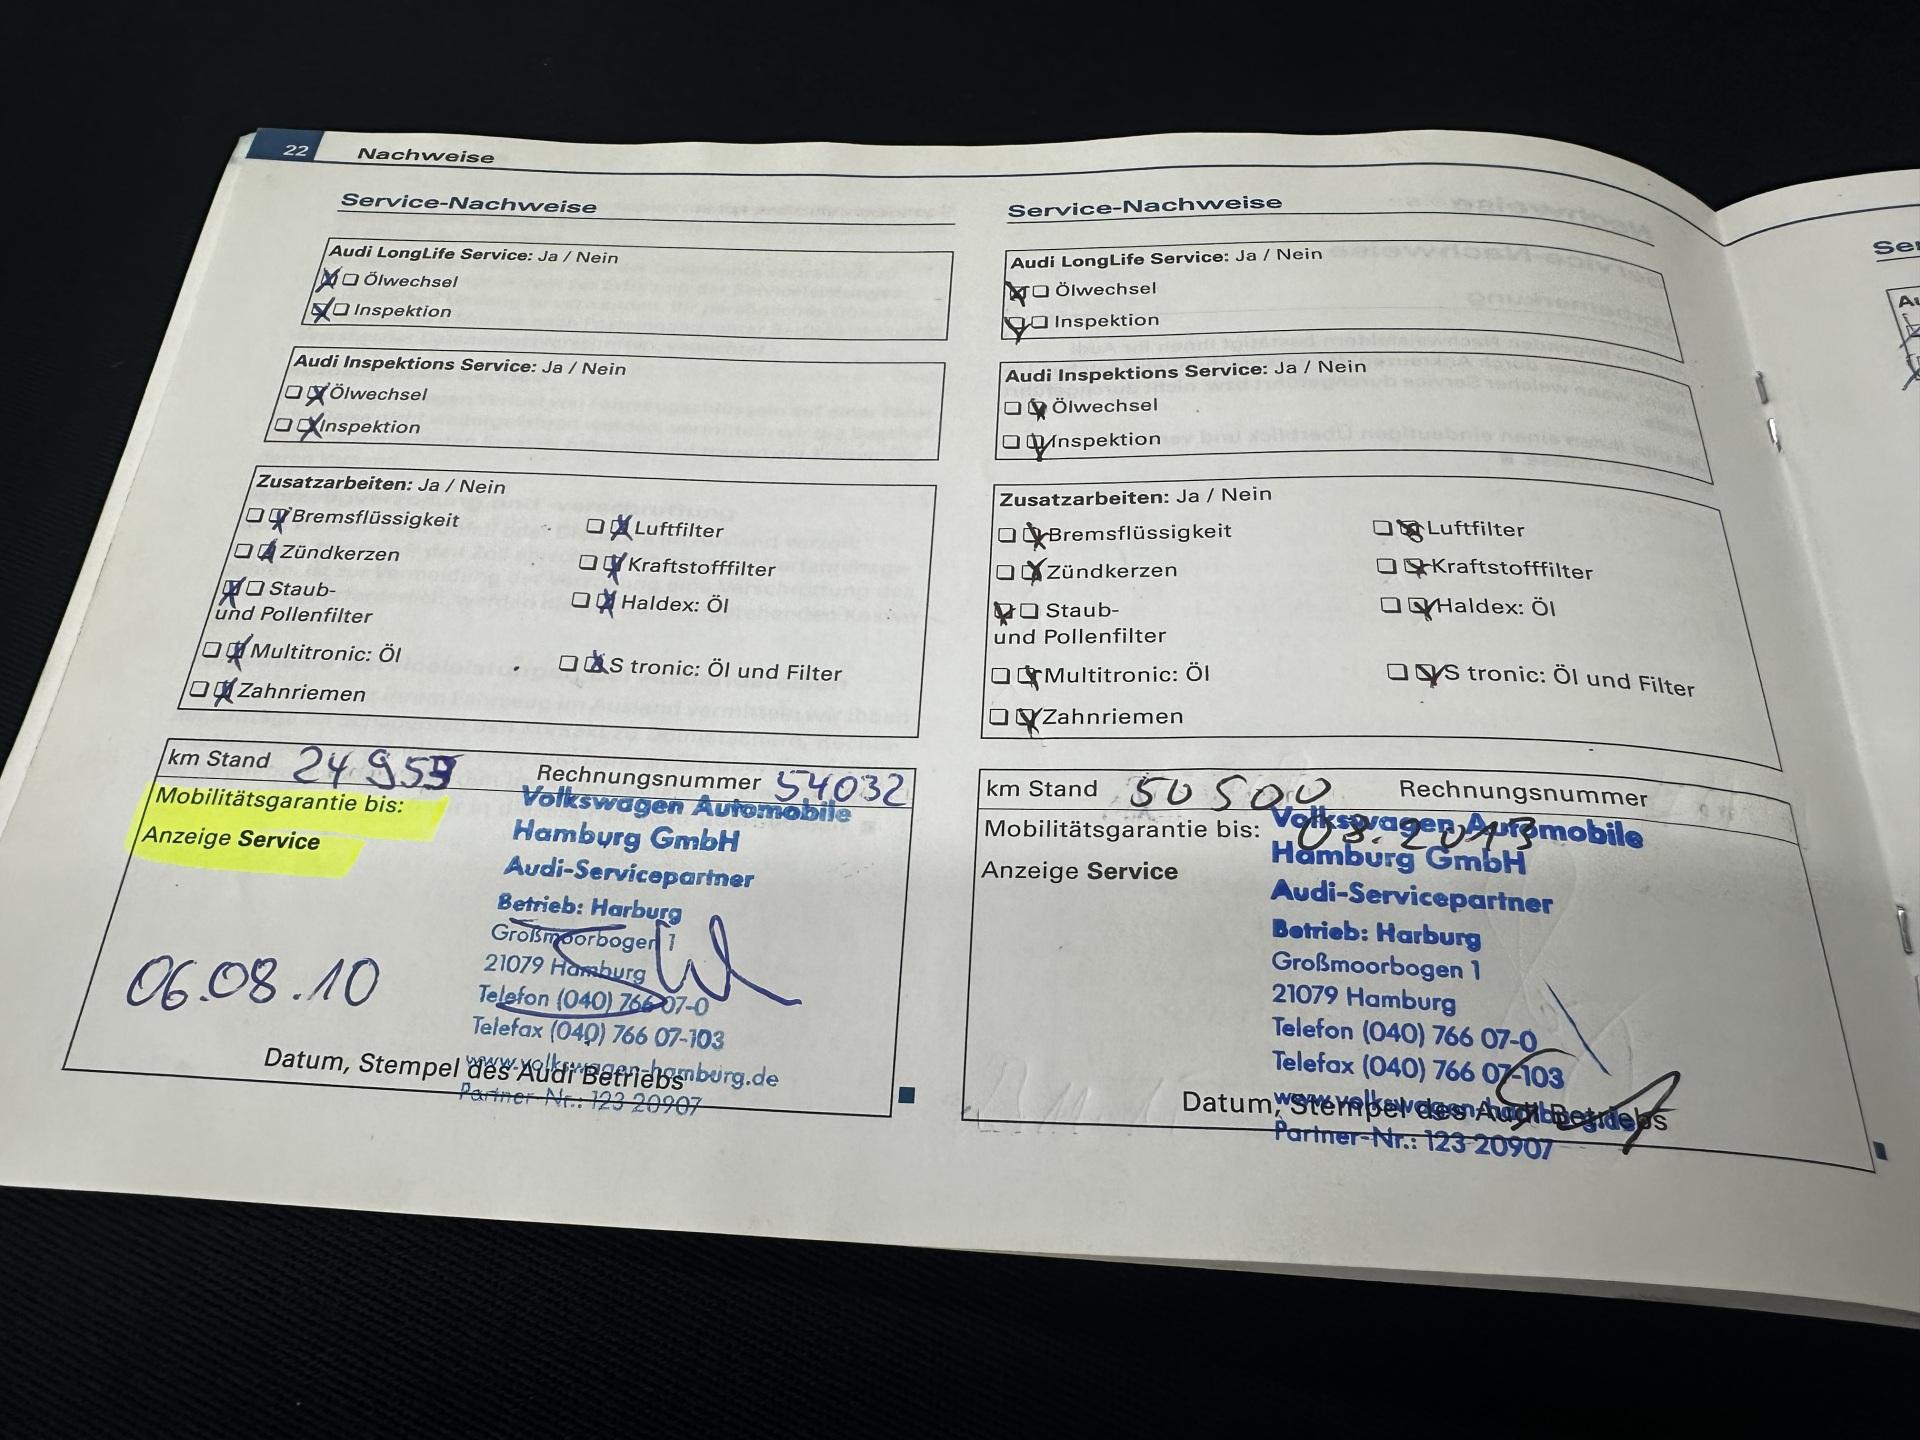 22 Nachweise
Service-Nachweise
Audi LongLife Service: Ja / Nein
Ölwechsel
Inspektion
Audi Inspektions Service: Ja / Nein
Ölwechsel
Inspektion
Zusatzarbeiten: Ja / Nein
Bremsflüssigkeit
Luftfilter
Zündkerzen
Kraftstofffilter
Staub-
und Pollenfilter
Haldex: Öl
Multitronic: Öl
S tronic: Öl und Filter
Zahnriemen
km Stand 24955 Rechnungsnummer 54032
Mobilitätsgarantie bis:
Anzeige Service
Volkswagen Automobile
Hamburg GmbH
Audi-Servicepartner
Betrieb: Harburg
Großmoorbogen 1
21079 Hamburg
Telefon (040) 766 07-0
Telefax (040) 766 07-103
www.volkswagen-hamburg.de
Partner-Nr.: 123 20907
06.08.10
Datum, Stempel des Audi Betriebs
Service-Nachweise
Audi LongLife Service: Ja / Nein
Ölwechsel
Inspektion
Audi Inspektions Service: Ja / Nein
Ölwechsel
Inspektion
Zusatzarbeiten: Ja / Nein
Bremsflüssigkeit
Luftfilter
Zündkerzen
Kraftstofffilter
Staub-
und Pollenfilter
Haldex: Öl
Multitronic: Öl
S tronic: Öl und Filter
Zahnriemen
km Stand 50500 Rechnungsnummer
Mobilitätsgarantie bis: 03.2013
Anzeige Service
Volkswagen Automobile
Hamburg GmbH
Audi-Servicepartner
Betrieb: Harburg
Großmoorbogen 1
21079 Hamburg
Telefon (040) 766 07-0
Telefax (040) 766 07-103
www.volkswagen-hamburg.de
Partner-Nr.: 123 20907
Datum, Stempel des Audi Betriebs